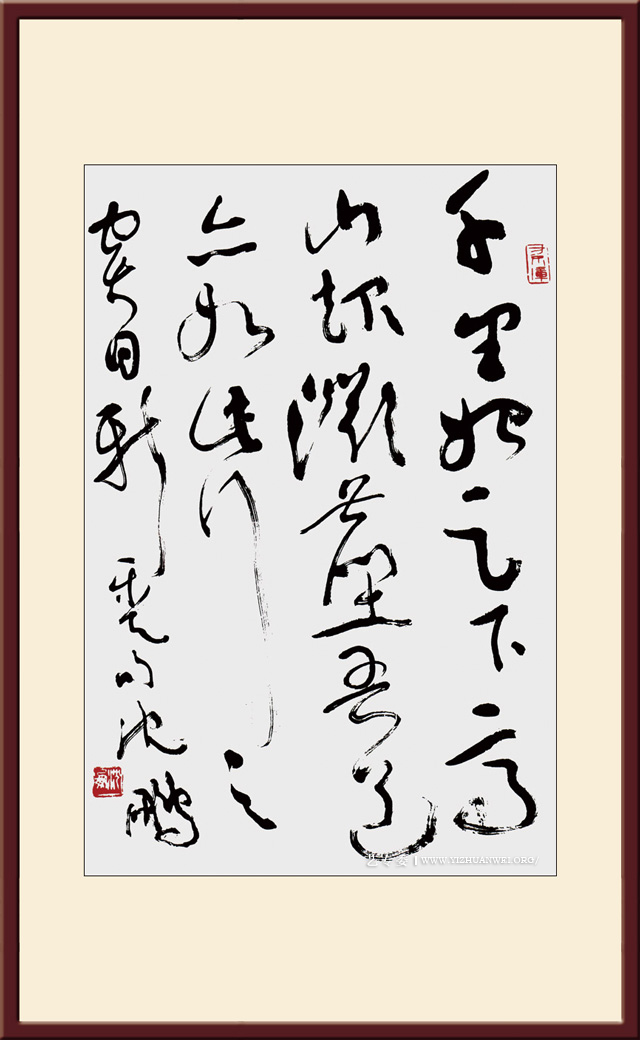 千里始足下高
山起微塵吾道
亦如此行之
貴日新 樂天句 沈鵬
艺专委 WWW.YIZHUANWEI.ORG